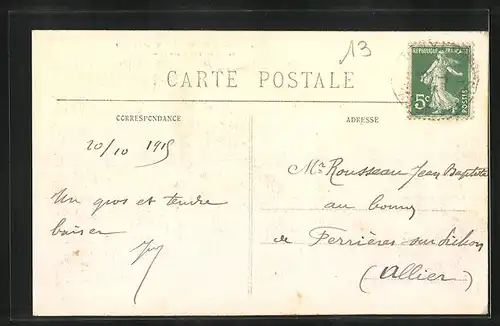 13
CARTE POSTALE
REPUBLIQUE FRANÇAISE
5c
POSTES
CORRESPONDANCE
ADRESSE
20/10 1915
Un gros et tendre
baiser
Mr Rousseau Jean Baptiste
au bourg
de Ferrières-sur-Sichon
(Allier)